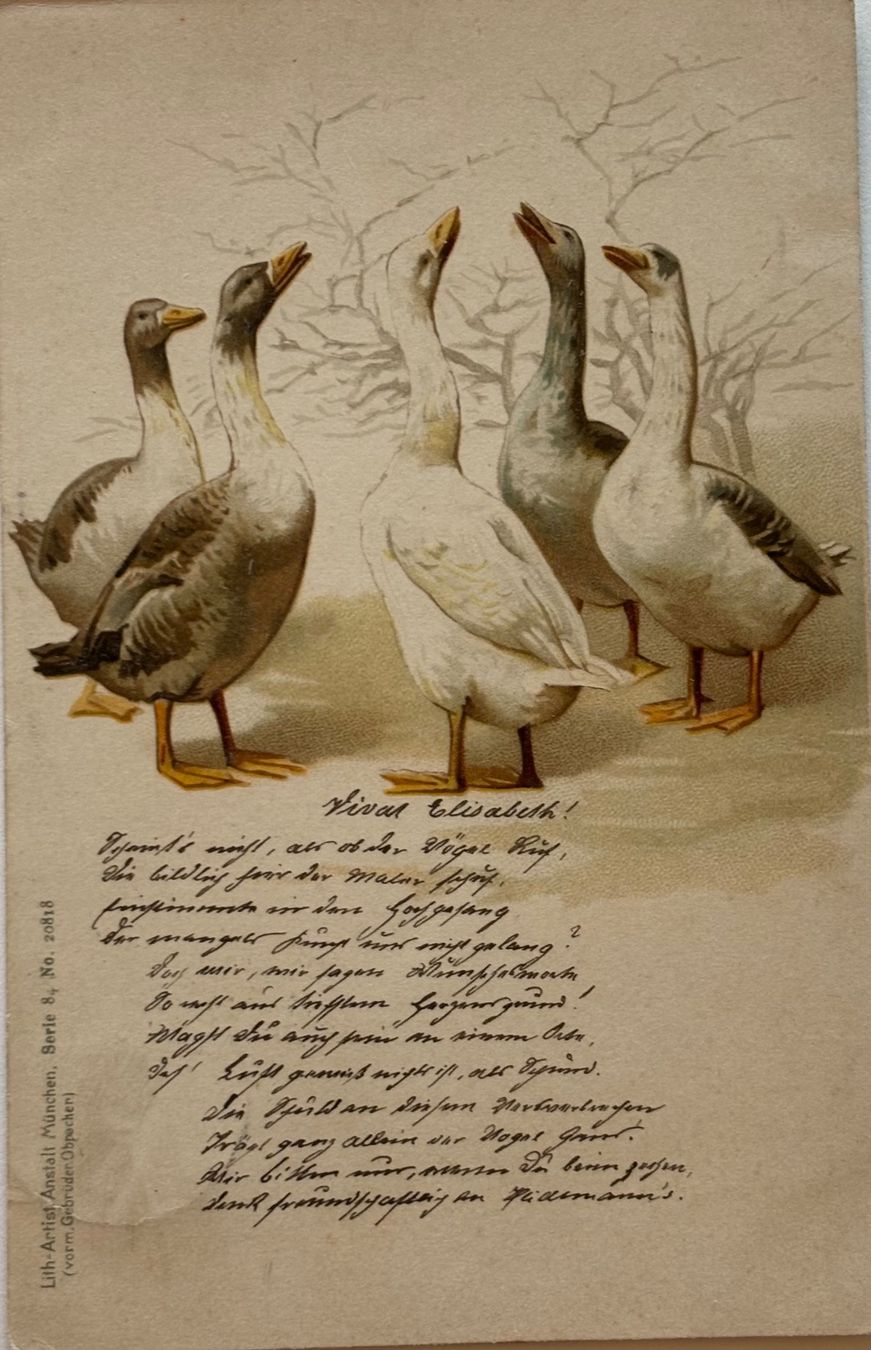 Vivat Elisabeth!
Scheint's nicht, als ob der Vögel Ruf,
Die bildlich hier der Maler schuf,
Einstimmte in den Hochgesang
Der mangels Kunst uns nicht gelang?
Doch wir, wir sagen Wünschesworte
So recht aus tiefstem Herzensgrund!
Magst Du auch sein an einem Orte,
Des' Luft gewiß nichts ist, als Schund.
Die Schuld an diesem Versverbrechen
Trägt ganz allein der Vogel Gans.
Wir bitten nur, wenn Du beim zechen,
Denk freundschaftlich an
Lith-Artist. Anstalt München, Serie 84 No. 20818
(vorm. Gebrüder Obpacher)